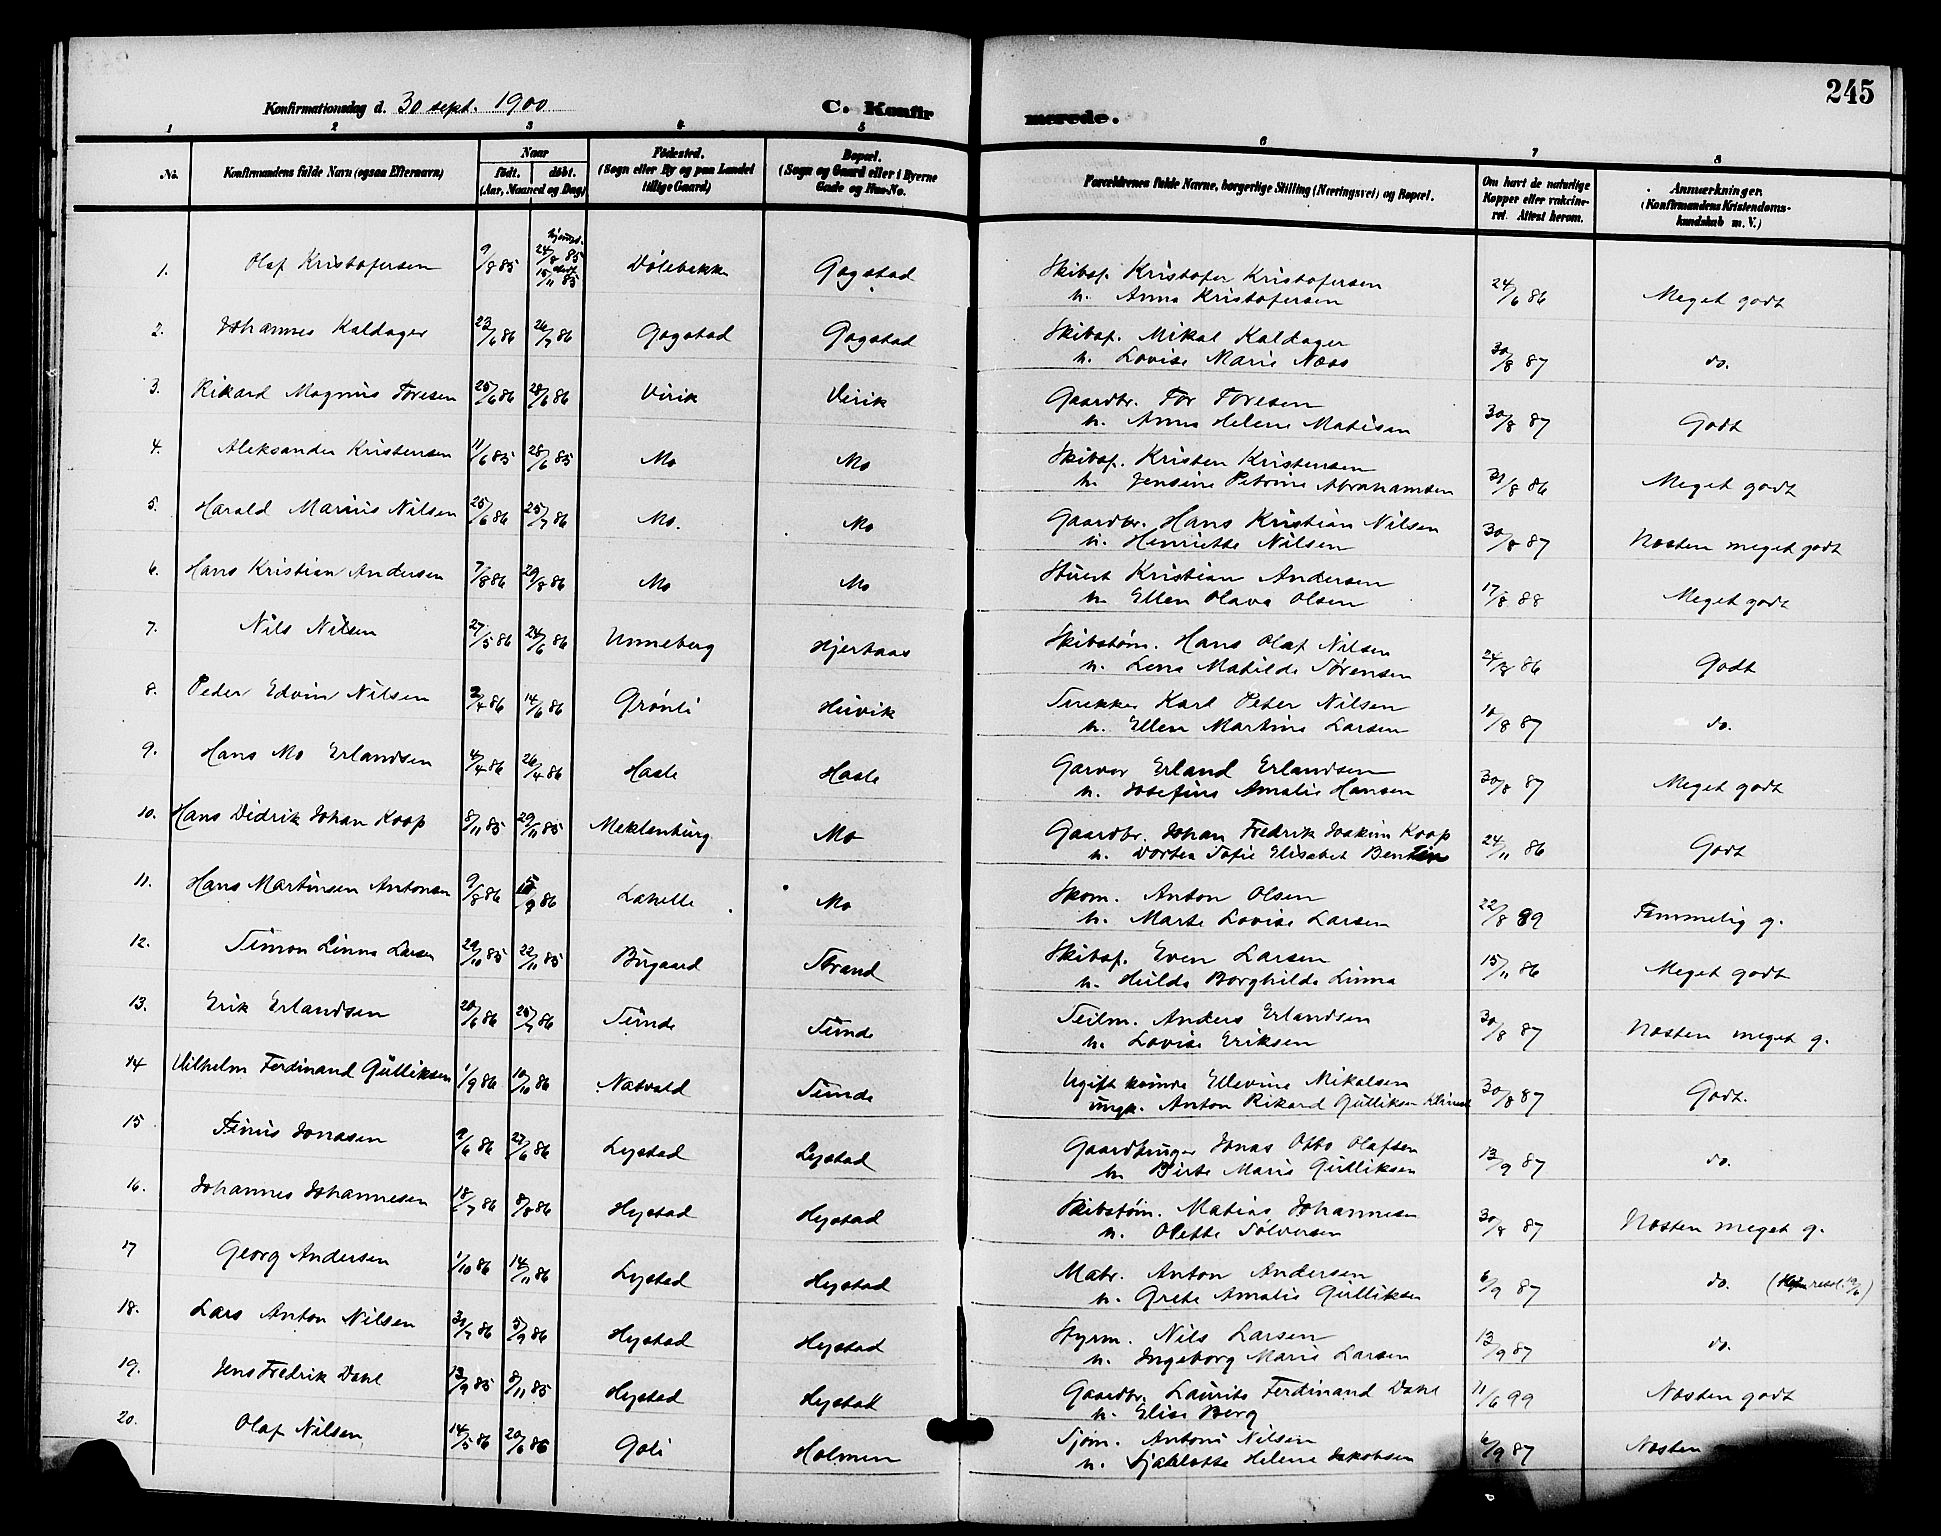 245
Konfirmationsdag d. 30 sept. 1900 C. Konfirmerede.
1 2 3 4 5 6 7 8
No. Konfirmandens fulde Navn (ogsaa Efternavn) Naar født. døbt. (Aar, Maaned og Dag) Fødested. (Sogn eller By og paa Landet tillige Gaard) Bopæl. (Sogn og Gaard eller i Byerne Gade og Hus-No. Forældrenes fulde Navne, borgerlige Stilling (Næringsvei) og Bopæl. Om havt de naturlige Kopper eller vakcineret. Attest herom. Anmærkninger. (Konfirmandens Kristendomskundskab m. V.)
1. Olaf Kristofersen 9/8 85 hjemmed. 24/8 85 15/11 85 Dølebakk Gogstad Skibsf. Kristofer Kristofersen 24/6 86 Meget godt
h. Anna Kristofersen
2. Johannes Kaldager 23/6 86 26/7 86 Gogstad Gogstad Skibsf. Mikal Kaldager 30/8 87 do.
h. Lovise Marie Næss
3. Rikard Magnus Toresen 25/6 86 28/6 86 Virik Virik Gaardbr. Tor Toresen 30/8 87 Godt
h. Anna Helene Matisen
4. Aleksander Kristensen 11/6 85 28/6 85 Mo Mo Skibsf. Kristen Kristensen 31/8 86 Meget godt
h. Jensine Petrine Abrahamsen
5. Harald Marius Nilsen 25/6 86 25/7 86 Mo. Mo Gaardbr. Hans Kristian Nilsen 30/8 87 Næsten meget godt
h. Henriette Nilsen
6. Hans Kristian Andersen 7/8 86 29/8 86 Mo Mo Stuert Kristian Andersen 17/8 88 Meget godt
h. Ellen Olava Olsen
7. Nils Nilsen 27/5 86 24/6 86 Unneberg Hjertaas Skibstøm. Hans Olaf Nilsen 24/8 86 Godt
h. Lena Matilde Sørensen
8. Peder Edvin Nilsen 2/4 86 14/6 86 Grønli Huvik Snekker Karl Peter Nilsen 10/8 87 do.
h. Ellen Martine Larsen
9. Hans Mo Erlandsen 4/4 86 26/4 86 Hasle Hasle Garver Erland Erlandsen 30/8 87 Meget godt
h. Josefine Amalie Hansen
10. Hans Didrik Johan Koop 8/11 85 29/11 85 Meklenburg Mo Gaardbr. Johan Fredrik Joakim Koop 24/11 86 Godt
h. Dortea Sofie Elisabet Bentin
11. Hans Martinsen Antonsen 9/8 86 /9 86 Lahelle Mo Skom. Anton Olsen 22/8 99 Temmelig g.
h. Marte Lovise Larsen
12. Simon Linna Larsen 29/10 85 22/11 85 Bugaard Strand Skibsf. Even Larsen 15/11 86 Meget godt
h. Hulda Borghilda Linna
13. Erik Erlandsen 20/6 86 25/7 86 Sunde Sunde Seilm. Anders Erlandsen 30/8 87 Næsten meget g.
h. Lovise Eriksen
14 Vilhelm Ferdinand Gulliksen 1/9 86 10/10 86 Natvald Sunde Ugift kvinde Ellevine Mikalsen 30/8 87 Godt.
ungk. Anton Rikard Gulliksen
15 Finus Jonasen 9/6 86 27/6 86 Lystad Lystad Gaardbruger Jonas Otto Olafsen 13/9 87 do.
h. Birte Marie Gulliksen
16. Johannes Johannesen 18/7 86 8/8 86 Hystad Hystad Skibstøm. Matias Johannesen 30/8 87 Næsten meget g.
h. Olette Sølversen
17 Georg Andersen 1/10 86 14/11 86 Lystad Hystad Matr. Anton Andersen 6/9 87 do.
h. Grete Amalie Gulliksen
18. Lars Anton Nilsen 30/7 86 5/9 86 Hystad Hystad Styrm. Nils Larsen 13/9 87 do.
h. Ingeborg Marie Larsen
19. Jens Fredrik Dahl 13/9 85 8/11 85 Hystad Hystad Gaardbr. Laurits Ferdinand Dahl 11/6 99 Næsten godt
h. Elise Berg
20. Olaf Nilsen 14/5 86 20/6 86 Goli Holmen Sjøm. Antoni Nilsen 6/9 87 Næsten
h. Sjarlotte Helene Jakobsen